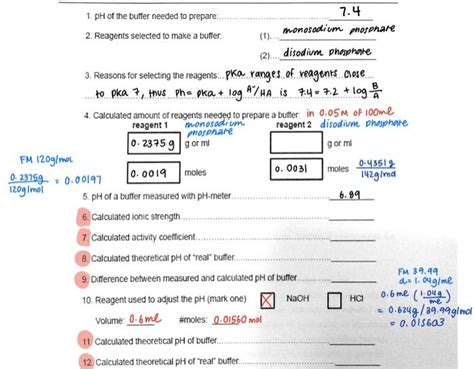 1. pH of the buffer needed to prepare: 7.4
2. Reagents selected to make a buffer: (1) monosodium phosphate
(2) disodium phosphate
3. Reasons for selecting the reagents: pKa ranges of reagents close
to pka 7, thus pH= pKa + log A⁻/HA is 7.4 = 7.2 + log B/A
4. Calculated amount of reagents needed to prepare a buffer: in 0.05M of 100ml
reagent 1 monosodium phosphate reagent 2 disodium phosphate
0.2375g g or ml g or ml
FM 120g/mol
0.2375g / 120g/mol = 0.00197
0.0019 moles 0.0031 moles 0.4351g / 142g/mol
5. pH of a buffer measured with pH-meter 6.89
6. Calculated ionic strength
7. Calculated activity coefficient
8. Calculated theoretical pH of "real" buffer
9. Difference between measured and calculated pH of buffer
10. Reagent used to adjust the pH (mark one) X NaOH HCl
Volume: 0.6ml #moles: 0.01560 mol
FM 39.99
d= 1.04g/ml
0.6ml (1.04g / ml)
= 0.624g / 39.99g/mol
= 0.015603
11. Calculated theoretical pH of buffer
12. Calculated theoretical pH of "real" buffer